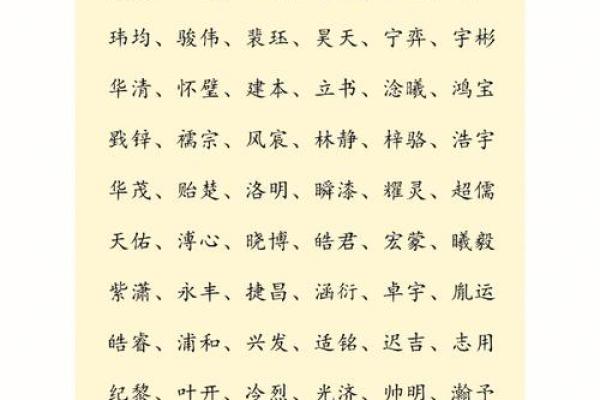 玮均、骏伟、裴珏、昊天、宁弈、宇彬
华清、怀璧、建本、立书、淦曦、鸿宝
戥锌、襦宗、风宸、林静、梓骆、浩宇
华茂、贻楚、洛明、瞬漆、耀灵、超儒
天佑、溥心、晓博、皓君、宏蒙、曦毅
紫潇、永丰、捷昌、涵衍、卓宇、胤运
皓睿、浦和、兴发、适铭、迟吉、志用
纪黎、叶开、冷烈、光济、帅明、瀚予